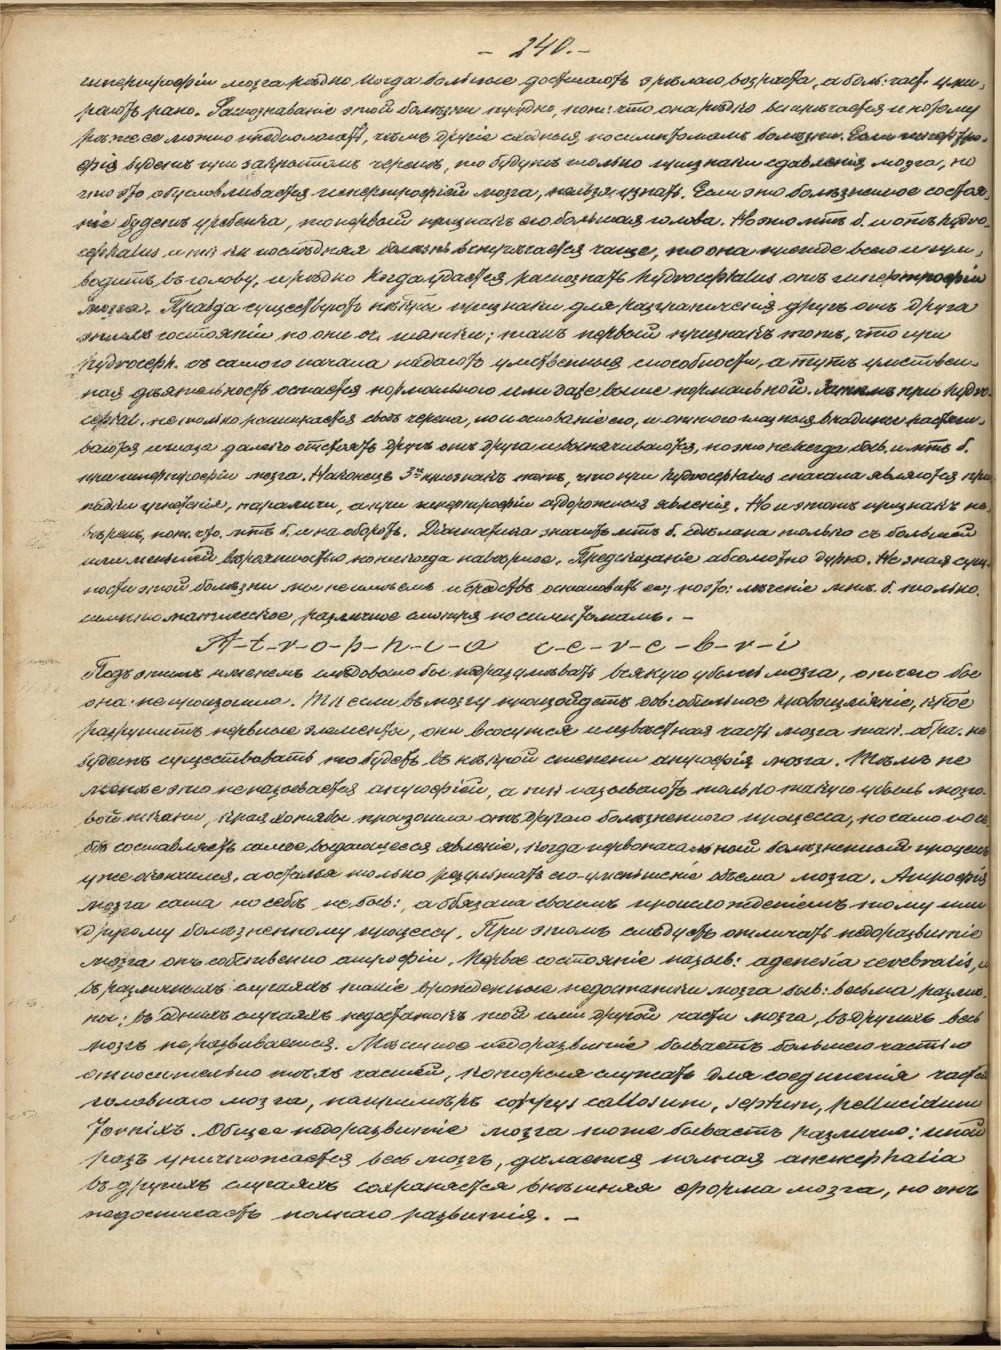 - 240. -
гипертрофіи мозга рѣдко когда больные достигаютъ зрѣлаго возраста, а больш: част. уми,
раютъ рано. Распознаваніе этой болѣзни трудно, пот: что она рѣдко встрѣчается и потому
рѣже ее можно предполагать, чѣмъ другіе сходныя по симптомамъ болѣзни. Если гипертро-
фія будетъ при закрытомъ черепѣ, то будутъ только признаки сдавленія мозга, но
что это обусловливается гипертрофіей мозга, нельзя узнать. Если это болѣзненное состоя,
ніе будетъ у ребенка, то первый признакъ его большая голова. Но это мтъ б. и отъ hydro-
cephalus и тк кк послѣдняя болѣзнь встрѣчается чаще, то она прежде всего и при,
водитъ въ голову, и рѣдко когда удается распознать hydrocephalus отъ гипертрофіи
мозга. Правда существуютъ нѣктрые признаки для разграниченія другъ отъ друга
этихъ состояній но они оч. шатки; такъ первый признакъ тотъ, что при
hydroceph. съ самого начала падаютъ умственныя способности, а тутъ умствен-
ная дѣятельность остается нормальною или даже выше нормальной. Затѣмъ при hydro-
cephal. не только расширяется сводъ черепа, но и основаніе его, и отъ того глазныя впадины растяги-
ваются и глаза далеко отстоятъ другъ отъ друга и выпячиваются, но это не всегда быв. и мтъ б.
при гипертрофіи мозга. Наконецъ 3й признакъ тотъ, что при hydrocephalus сначала являются при
падки угнетенія, параличи, а при гипертрофіи судорожныя явленія. Но и этотъ признакъ не-
вѣренъ, пот. что. мтъ б. и на оборотъ. Діагностика значитъ мтъ б. сдѣлана только съ большей
или меньшей вѣроятностью но никогда навѣрное. Предсказаніе абсолютно дурно. Не зная сущ-
ности этой болѣзни мы не имѣемъ и средствъ остановить ее; поэто: лѣченіе мтъ. б. только.
симптоматическое, различное смотря по симптомамъ. -
A-t-r-o-p-h-i-a c-e-r-e-b-r-i
Подъ этимъ именемъ слѣдовало бы подразумѣвать всякую убыль мозга, отъ чего бы
она не произошла. Тк если въ мозгу произойдетъ обильное кровоизліяніе, ктрое
разрушитъ нервные элементы, они всосутся и извѣстная часть мозга так. обра. не
будетъ существовать то будетъ въ нѣктрой степени атрофія мозга. Тѣмъ не
менѣе это не называется атрофіей, а тк называютъ только такую убыль мозго
вой ткани, ктрая хотя бы произошла отъ другаго болѣзненнаго процесса, но само по се,
бѣ составляетъ самое выдающееся явленіе, когда первоначальный болѣзненный процессъ
уже окончился, а остался только результатъ его-уменьшеніе объема мозга. Атрофія
мозга сама по себѣ не быв:, а обязана своимъ происхожденіемъ тому или
другому болѣзненному процессу. При этомъ слѣдуетъ отличать недоразвитіе
мозга отъ собственно атрофіи. Первое состояніе назыв: agenesia cerebralis, и
въ различныхъ случаяхъ такіе врожденные недостатки мозга быв: весьма различ-
ны; въ однихъ случаяхъ недостатокъ той или другой части мозга, въ другихъ весь
мозгъ не развивается. Мѣстное недоразвитіе бываетъ большею частью
относительно тѣхъ частей, которыя служатъ для соединенія частей
головнаго мозга, напримѣръ corpus callosum, septum, pellucidum
fornix. Общее недоразвитіе мозга тоже бываетъ различно: иной
разъ уничтожается весь мозгъ, дѣлается полная anencephalia
въ другихъ случаяхъ сохраняется внѣшняя форма мозга, но онъ
недостигаетъ полнаго развитія. -